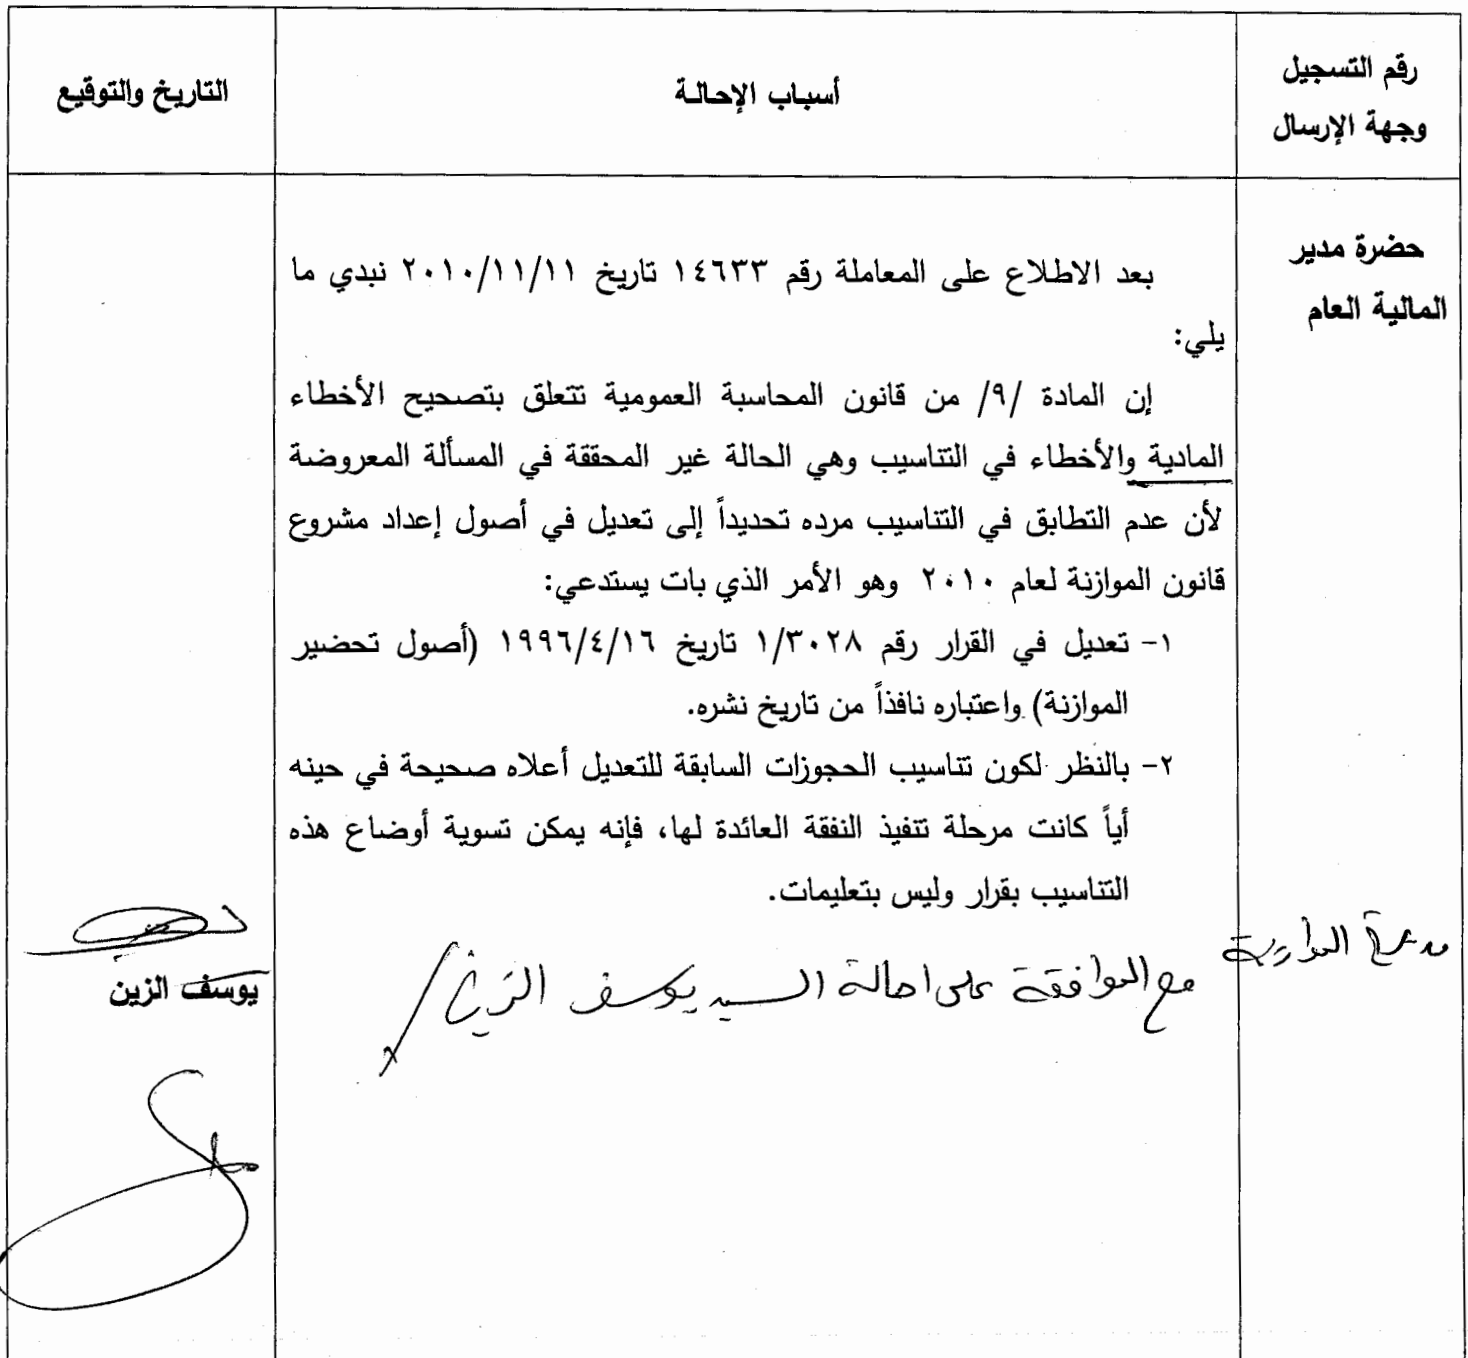 رقم التسجيل
وجهة الإرسال
أسباب الإحالة
التاريخ والتوقيع
حضرة مدير
المالية العام
بعد الاطلاع على المعاملة رقم ١٤٦٣٣ تاريخ ٢٠١٠/١١/١١ نبدي ما
يلي:
إن المادة /٩/ من قانون المحاسبة العمومية تتعلق بتصحيح الأخطاء
المادية والأخطاء في التناسيب وهي الحالة غير المحققة في المسألة المعروضة
لأن عدم التطابق في التناسيب مرده تحديداً إلى تعديل في أصول إعداد مشروع
قانون الموازنة لعام ٢٠١٠ وهو الأمر الذي بات يستدعي:
١- تعديل في القرار رقم ١/٣٠٢٨ تاريخ ١٩٩٦/٤/١٦ (أصول تحضير
الموازنة) واعتباره نافذاً من تاريخ نشره.
٢- بالنظر لكون تناسيب الحجوزات السابقة للتعديل أعلاه صحيحة في حينه
أياً كانت مرحلة تنفيذ النفقة العائدة لها، فإنه يمكن تسوية أوضاع هذه
التناسيب بقرار وليس بتعليمات.
مديرية الموازنة
مع الموافقة على احالة السيد يوسف الزين
يوسف الزين